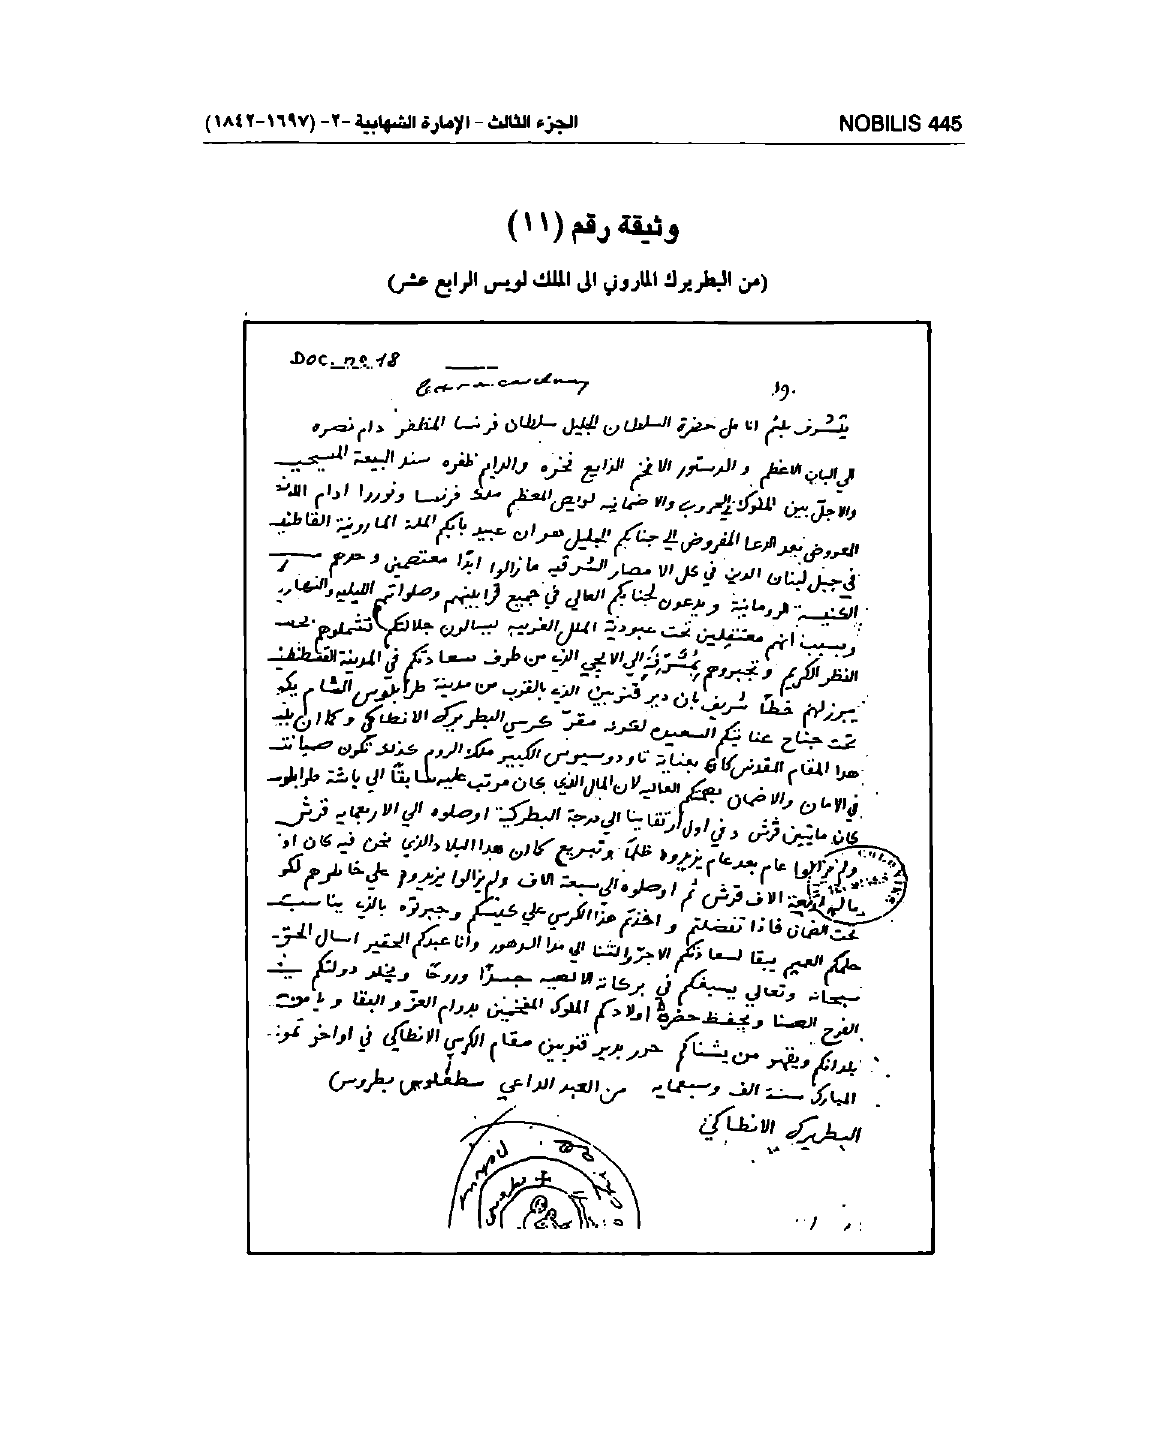 الجزء الثالث - الإمارة الشهابية -٢- (١٦٩٧-١٨٤٢)
NOBILIS 445
وثيقة رقم (١١)
(من البطريرك الماروني الى الملك لويس الرابع عشر)
Doc. no. 18
يتشرف بلثم انامل حضرة السلطان الجليل سلطان فرنسا المظفر دام نصره
الي الباب الاعظم و الدستور الافخم الرايع فخره والدايم ظفره سند البيعة المسيحيه
والاجل بين الملوك في الحروب لويس المعظم ملك فرنسا ادام الله
المعروض بعد الدعا المفروض الي جنابكم الجليل هو ان عبيد بابكم الملة المارونية القاطنين
في جبل لبنان الذين في كل الامصار الشرقيه ما زالوا ابدًا معتصمين
الكنيسة الرومانية ويدعون لجنابكم العالي في جميع قرابينهم وصلواتهم الليليه والنهاريه
وبسبب انهم معتقلين تحت عبودية الملل الغريبه يسالون جلالتكم تشملوهم بحسن
النظر الكريم و تجبروهم الي الالجي الذي من طرف سعادتكم في المدينة القسطنطينيه
يبرز لهم خطًا شريف بان دير قنوبين الذي بالقرب من مدينة طرابلوس الشام يكون
تحت جناح عنايتكم السعيده لكونه مقرّ كرسي البطريرك الانطاكي وكما ان
هدا المقام المقدس كان بعناية تاودوسيوس الكبير ملك الروم كذلك تكون صيانته
في الامان والاضمان بهمتكم العاليه لان المال الذي كان مرتب عليه سابقًا الي باشة طرابلوس
كان مايتين قرش و في اول ارتقاينا الي درجة البطركية اوصلوه الي الاربعمايه قرش
ولم يزالوا عام بعد عام يزيدوه ظلمًا كان هدا البلاد الذي نحن فيه كان
الاف قرش ثم اوصلوه الي سبعة الاف ولم يزالوا يزيدوه علي خاطرهم لكونه
تحت الضمان فاذا تفضلتم و اخذتم هذا الكرسي علي كيسكم بالذي يناسب
حلمكم العميم يبقا لسعادتكم الاجر والثنا الي مدا الدهور وانا عبدكم الحقير اسال الحق
سبحانه وتعالي يسبغكم في بركاته الالهيه جسدًا وروحًا ويخلد دولتكم
الفرح الهنا ويحفظ حضرة اولادكم الملوك المفخمين بدوام العز و البقا
بلدانكم ويقهر من يشناكم حرر بدير قنوبين مقام الكرسي الانطاكي في اواخر تموز
المبارك سنة الف وسبعمايه من العبد الداعي سطفانوس بطروس
البطريرك الانطاكي